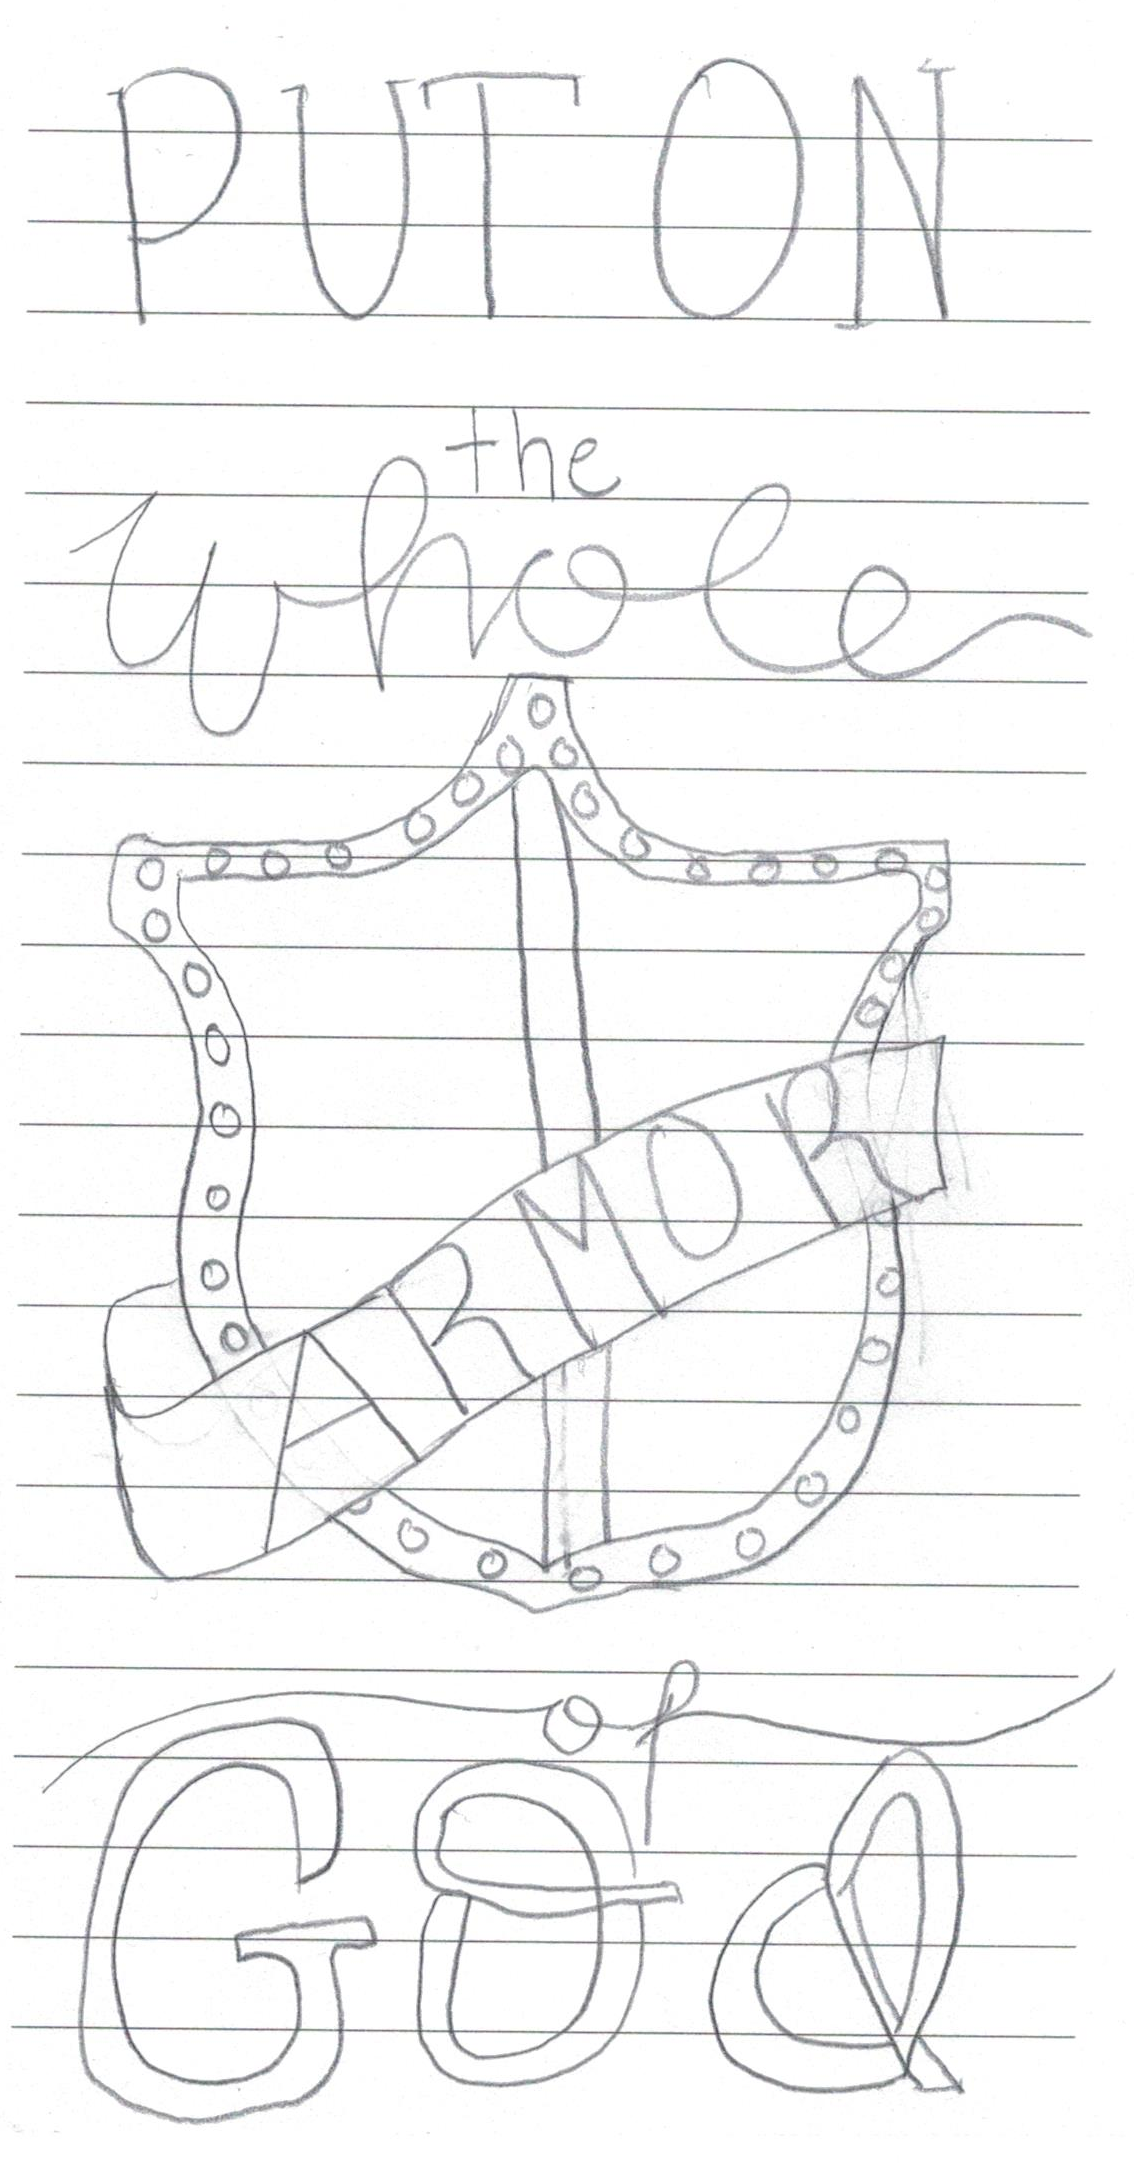 PUT ON
the
whole
ARMOR
of
GOd